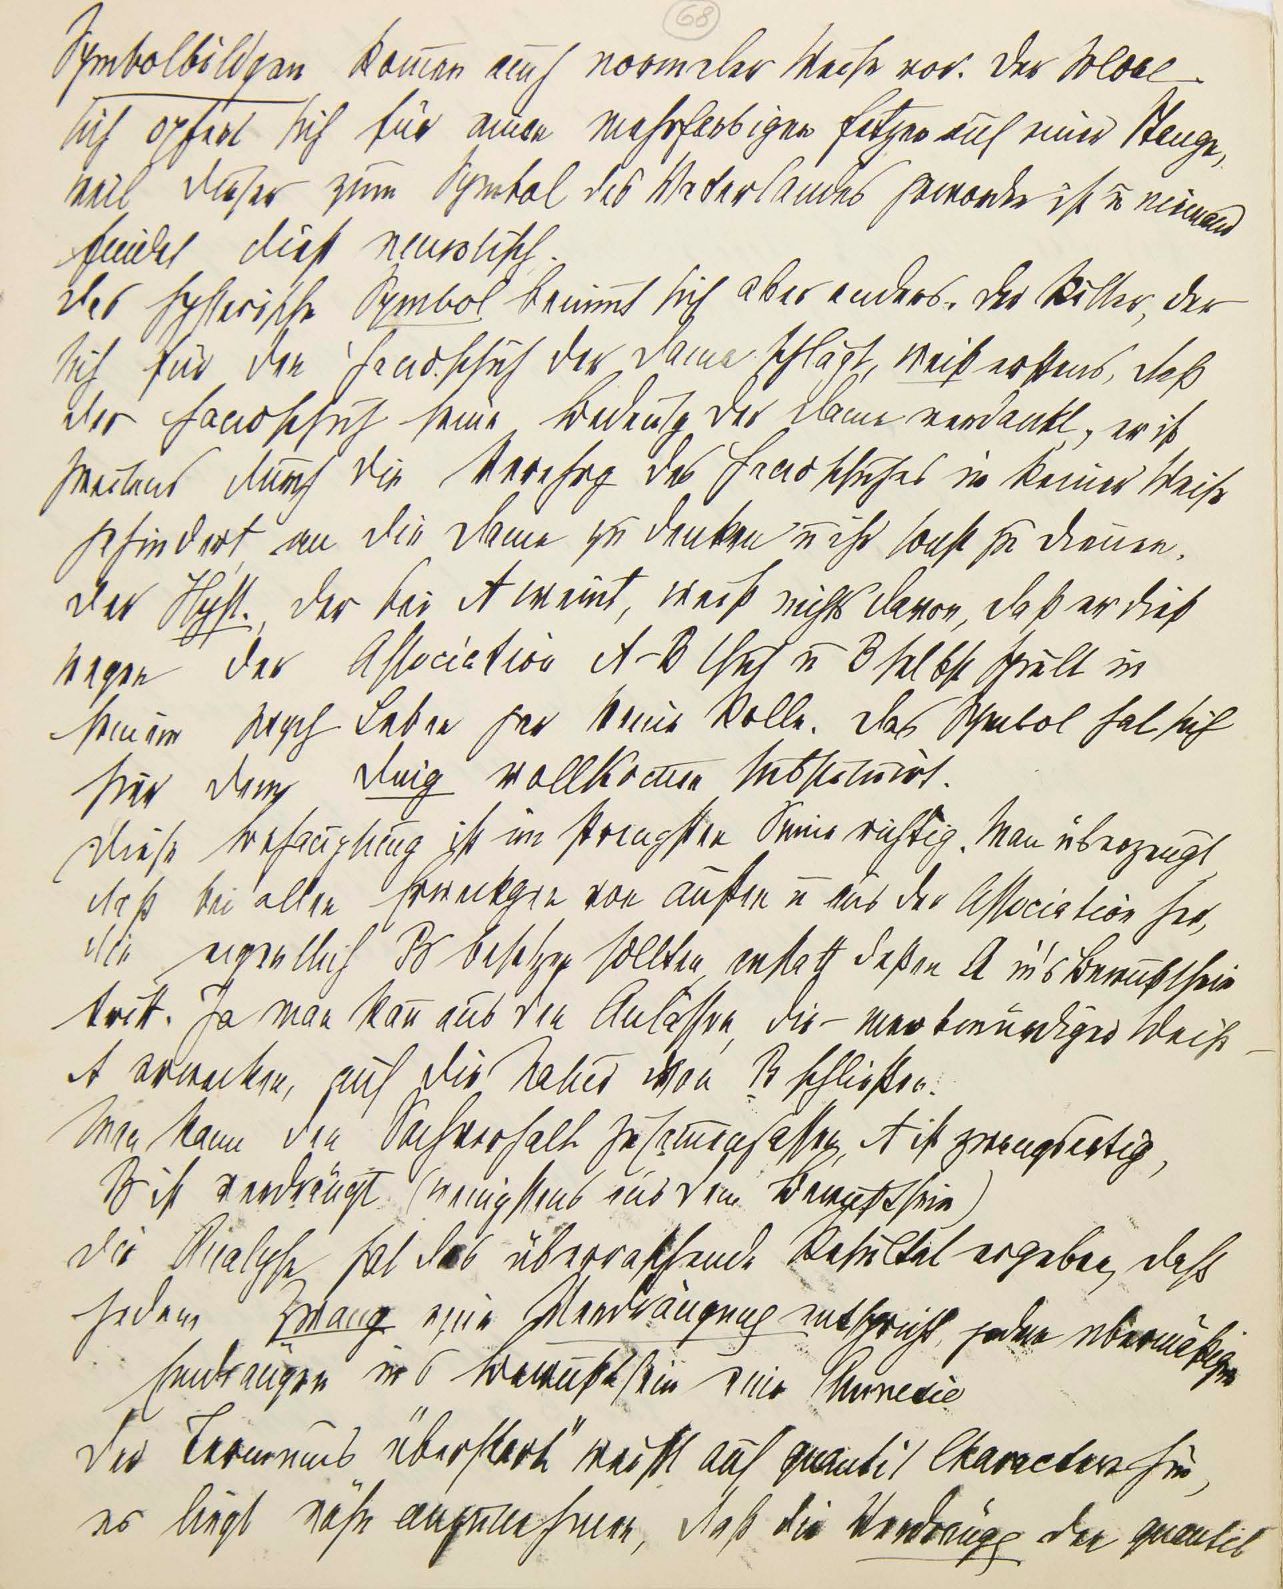 68
Symbolbildgen kom̄en auch normaler Weise vor. Der Soldat
sich opfert sich für einen mehrfarbigen Fetzen auf einer Stange,
weil dieser zum Symbol des Vaterlandes geworden ist u niemand
findet dieß neurotisch.
Das hysterische Symbol benim̄t sich aber anders. Der Ritter, der
sich für den Handschuh der Dame schlägt, weiß erstens, daß
der Handschuh seine Bedeutg der Dame verdankt, er ist
zweitens durch die Verehrg des Handschuhes in keiner Weise
gehindert, an die Dame zu denken u ihr sonst zu dienen.
Der Hyst., der bei A weint, weiß nichts davon, daß er dieß
wegen der Association A-B thut u B selbst spielt in
seinem psych Leben gar keine Rolle. Das Symbol hat sich
hier dem Ding vollkom̄en substituirt.
Diese Behauptung ist im strengsten Sinne richtig. Man überzeugt
daß bei allen Erweckgen von außen u aus der Association her,
die eigentlich B besetzen sollten, anstatt deßen A in's Bewußtsein
tritt. Ja man kan̄ aus den Anlässen, die – merkwürdiger Weise –
A erwecken, auf die Natur von B schließen.
Man kann den Sachverhalt zusam̄enfassen, A ist zwangsartig,
B ist verdrängt (wenigstens aus dem Bewußtsein)
Die Analyse hat das überraschende Resultat ergeben, daß
jedem Zwang eine Verdrängung entspricht, jedem übermäßigen
Eindrängen ins Bewußtsein eine Amnesie
Der Terminus "überstark" weist auf quantit Charactere hin,
es liegt nahe anzunehmen, daß die Verdrängg den quantit